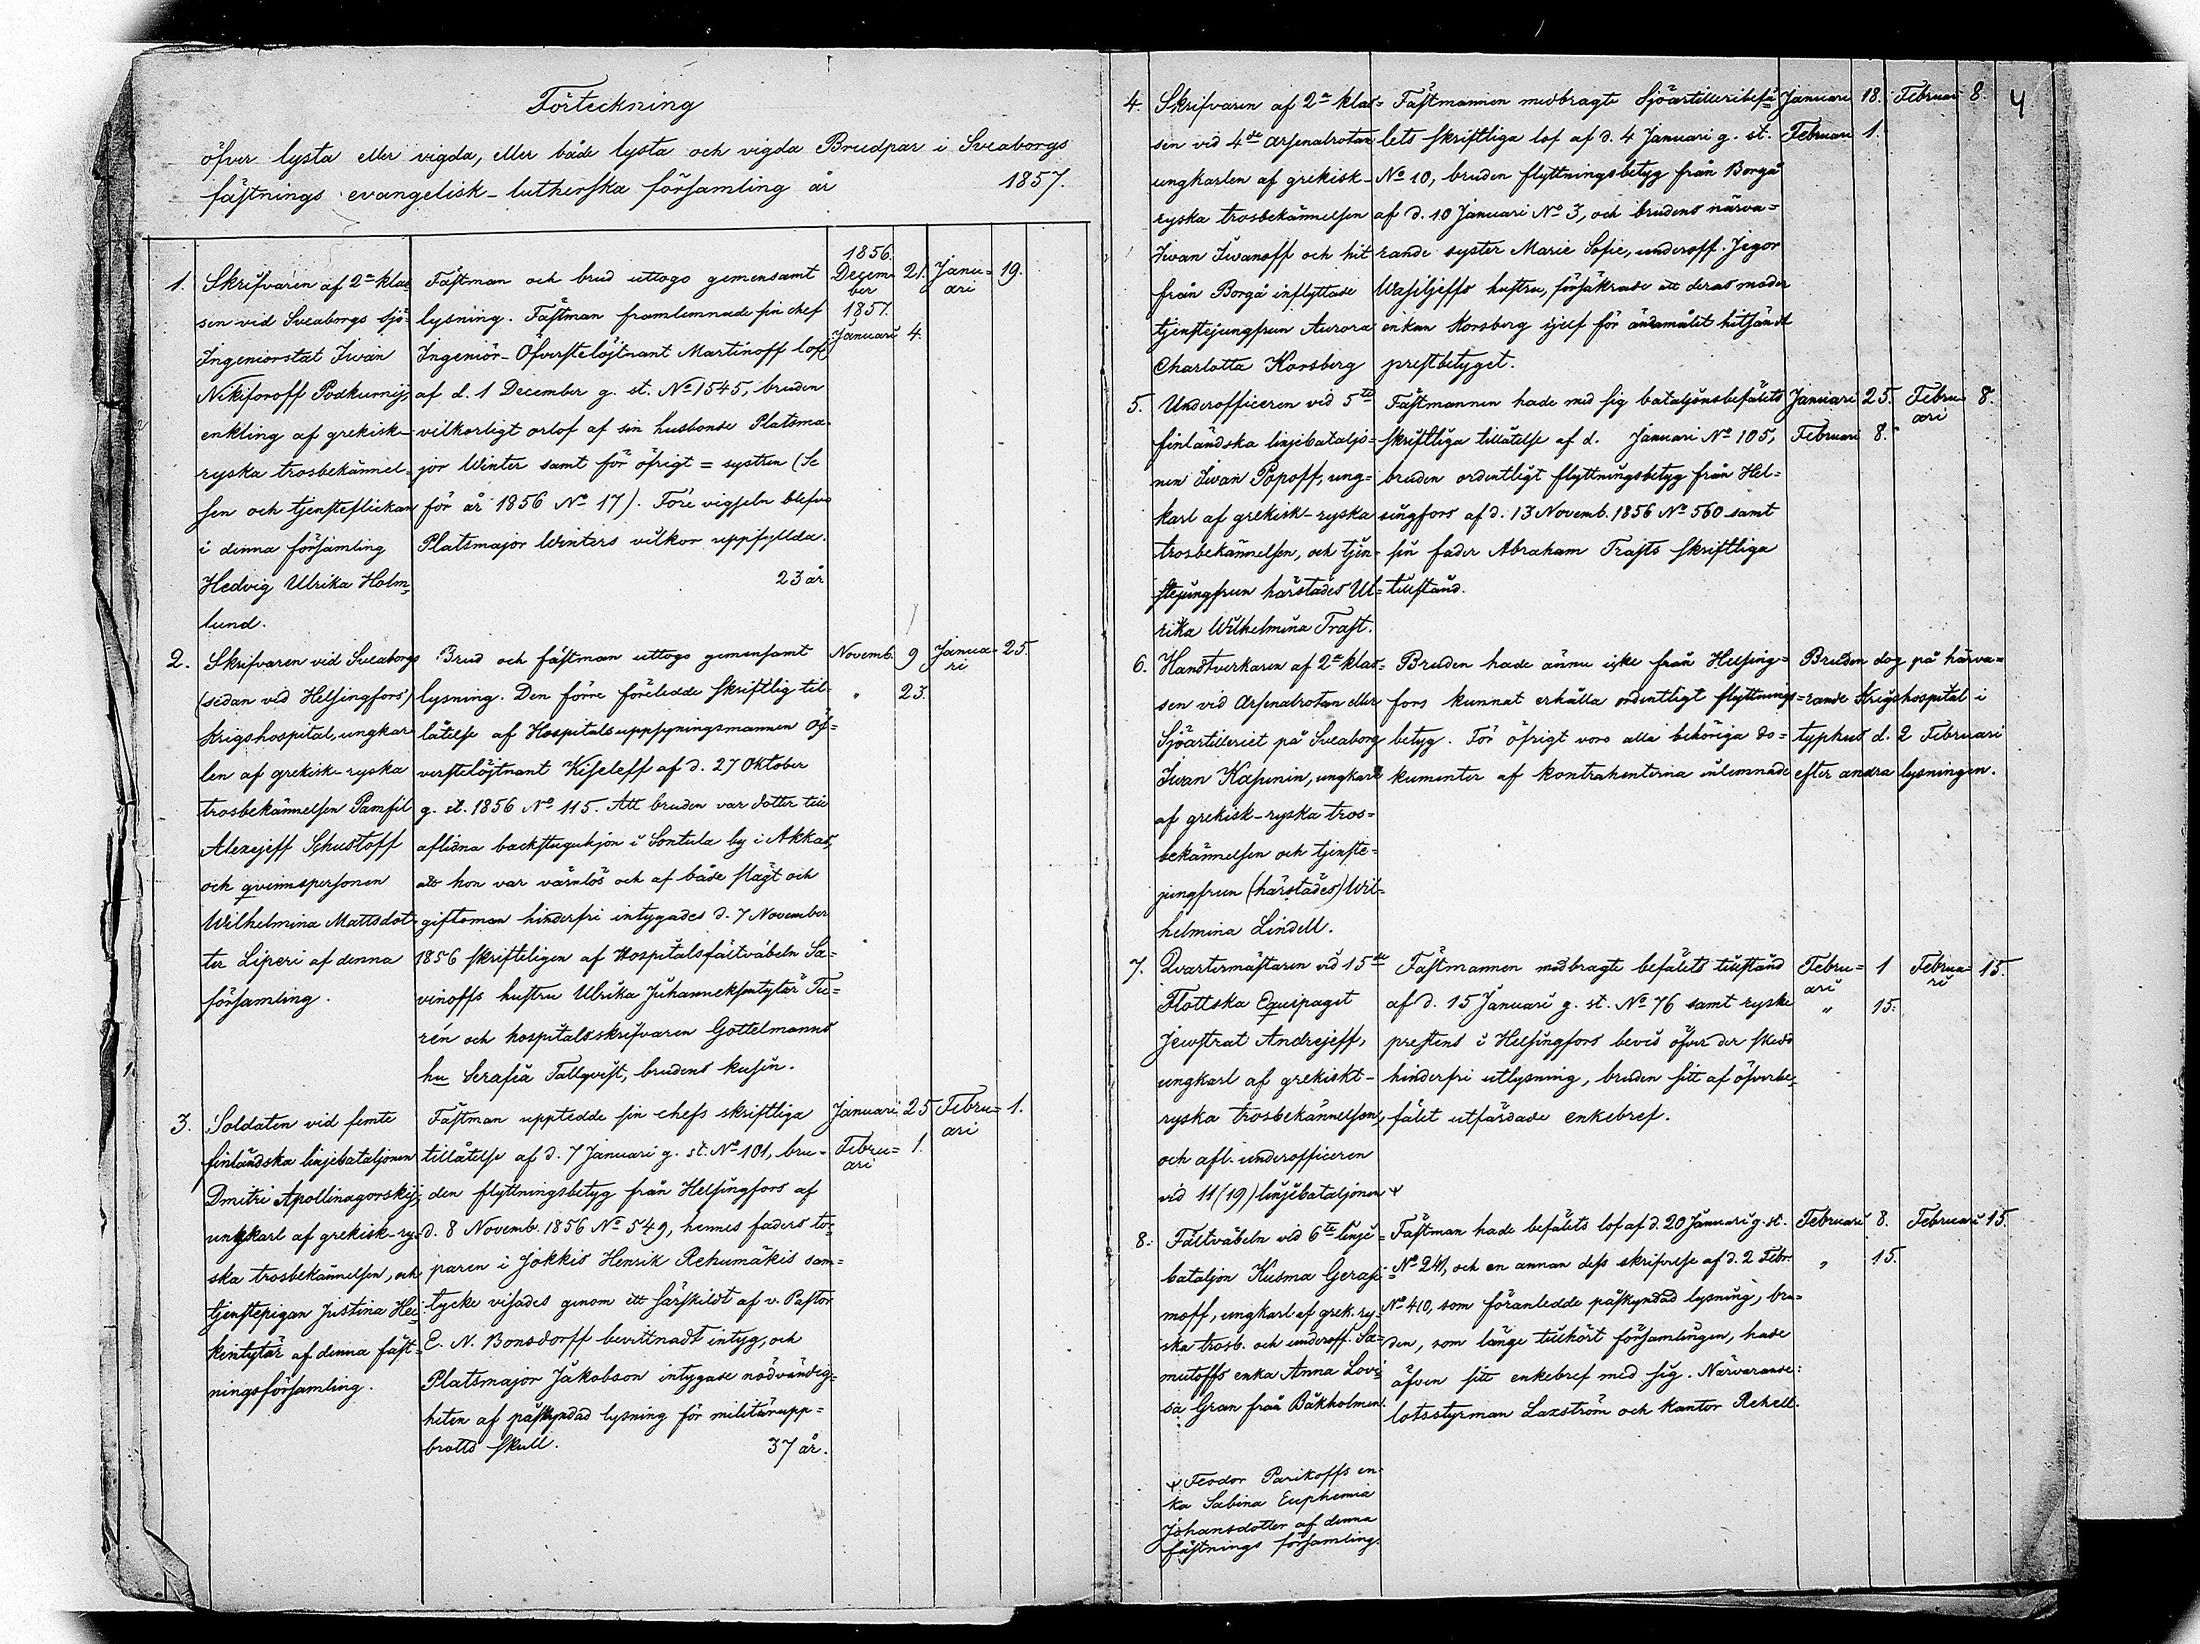 Förteckning
öfver lysta eller vigda, eller både lysta och vigda Brudpar i Sveaborgs
fästnings evangelisk-lutherska församling år 1857.
1.
Skrifvaren af 2a klas
sen vid Sveaborgs Sjö-
Ingeniörstat Iwan
Nikiforoff Podkurnij
enkling af grekisk-
ryska trosbekännel-
sen och tjensteflickan
i denna församling
Hedvig Ulrika Holm-
lund.
Fästman och brud uttogo gemensamt
lysning. Fästman framlemnade sin chef
Ingeniör-Öfverstelöjtnant Martinoff lof
af d. 1 December g. st. No 1545, bruden
vilkorligt orlof af sin husbonde Platsma-
jor Winter samt för öfrigt = systren (Se
för år 1856 No 17). Före vigseln blefvo
Platsmajor Winters vilkor uppfyllda.
23 år
1856.
Decem- 21. Janu- 19.
ber ari
1857.
Januari 4.
2.
Skrifvaren vid Sveaborgs
(sedan vid Helsingfors)
Krigshospital, ungkar
len af grekisk-ryska
trosbekännelsen Pamfil
Alexejeff Schustoff
och qvinnspersonen
Wilhelmina Mattsdot-
ter Liperi af denna
församling.
Brud och fästman uttogo gemensamt
lysning. Den förre företedde skriftlig til-
låtelse af Hospitalsuppsyningsmannen Öf-
verstelöjtnant Kiseleff af d. 27 Oktober
g. st. 1856 No 115. Att bruden var dotter till
aflidna backstugukjon i Sontula by i Akkas,
att hon var värnlös och af både slägt och
giftoman hinderfri intygades d. 7 November
1856 skriftligen af Hospitalsfältväbeln Sa-
vinoffs hustru Ulrika Juhanneksentytär Tu-
rén och hospitalsskrifvaren Gottelmanns
hu Serafia Tallqvist, brudens kusin.
Novemb. 9 Janua- 25.
ri
" 23.
3.
Soldaten vid femte
finländska linjebataljonen
Dmitri Apollinagorskij,
ungkarl af grekisk-ry-
ska trosbekännelsen, och
tjenstepigan Justina Hei-
kintytär af denna fäst-
ningsförsamling.
Fästman upptedde sin chefs skriftliga
tillåtelse af d. 7 Januari g. st. No 101, bru-
den flyttningsbetyg från Helsingfors af
d. 8 Novemb. 1856 No 549, hennes faders tor-
paren i Jokkis Henrik Rehumäkis sam-
tycke visades genom ett särskildt af v. Pastor
E. N. Bonsdorff bevittnadt intyg, och
Platsmajor Jakobson intygade nödvändig-
heten af påskyndad lysning för militärupp-
brotts skull. 37 år.
Januari 25 Febru- 1.
ari
Febru- 1.
ari
4
4.
Skrifvaren af 2a klas-
sen vid 4de Arsenalrotan
ungkarlen af grekisk-
ryska trosbekännelsen
Iwan Iwanoff och hit
från Borgå inflyttade
tjenstejungfrun Aurora
Charlotta Korsberg
Fästmannen medbragte Sjöartilleribefä
lets skriftliga lof af d. 4 Januari g. st.
No 10, bruden flyttningsbetyg från Borgå
af d. 10 Januari No 3, och brudens närva-
rande syster Marie Sofie, underoff. Jegor
Wasiljeffs hustru, försäkrade att deras moder
enkan Korsberg sjelf för ändamålet hitsändt
prestbetyget.
Januari 18. Februari 8.
Februari 1.
5.
Underofficeren vid 5te
finländska linjebataljo-
nen Iwan Popoff, ung-
karl af grekisk-ryska
trosbekännelsen, och tjen-
stejungfrun härstädes Ul-
rika Wilhelmina Trast.
Fästmannen hade med sig bataljonsbefälets
skriftliga tillåtelse af d. Januari No 105,
bruden ordentligt flyttningsbetyg från Hel-
singfors af d. 13 Novemb. 1856 No 560 samt
sin fader Abraham Trasts skriftliga
tillstånd.
Januari 25. Febru- 8.
ari
Februari 8.
6.
Handtverkaren af 2a klas-
sen vid Arsenalrotan eller
Sjöartilleriet på Sveaborg
Iwan Kapinin, ungkarl
af grekisk-ryska tros-
bekännelsen och tjenste-
jungfrun (härstädes) Wil-
helmina Lindell.
Bruden hade ännu icke från Helsing-
fors kunnat erhålla ordentligt flyttnings-
betyg. För öfrigt voro alla behöriga do-
kumenter af kontrahenterna inlemnade
Bruden dog på härva-
rande Krigshospital i
typhus d. 2 Februari
efter andra lysningen.
7.
Qvartermästaren vid 15de
Flottska Equipaget
Jewstrat Andrejeff,
ungkarl af grekiskt-
ryska trosbekännelsen,
och afl. underofficeren
vid 11 (19) linjebataljonen +
Fästmannen medbragte befälets tillstånd
af d. 15 Januari g. st. No 76 samt ryske
prestens i Helsingfors bevis öfver der skedd
hinderfri utlysning, bruden sitt af öfverbe-
fälet utfärdade enkebref.
Febru- 1 Februa- 15.
ari ri
" 15.
8.
Fältväbeln vid 6te linje-
bataljon Kusma Gerasi-
moff, ungkarl af grek. ry-
ska trosb. och underoff. Sa-
mutoffs enka Anna Lovi-
sa Gran från Bakholmen.
Fästman hade befälets lof af d. 20 Januari g. st.
No 241, och en annan dess skrifvelse af d. 2 Febr.
No 410, som föranledde påskyndad lysning, bru-
den, som länge tillhört församlingen, hade
äfven sitt enkebref med sig. Närvarande:
lotsstyrman Laxström och kantor Rehell.
Februari 8. Februari 15.
" 15.
+ Feodor Parikoffs en-
ka Sabina Euphemia
Johansdotter af denna
fästnings församling.